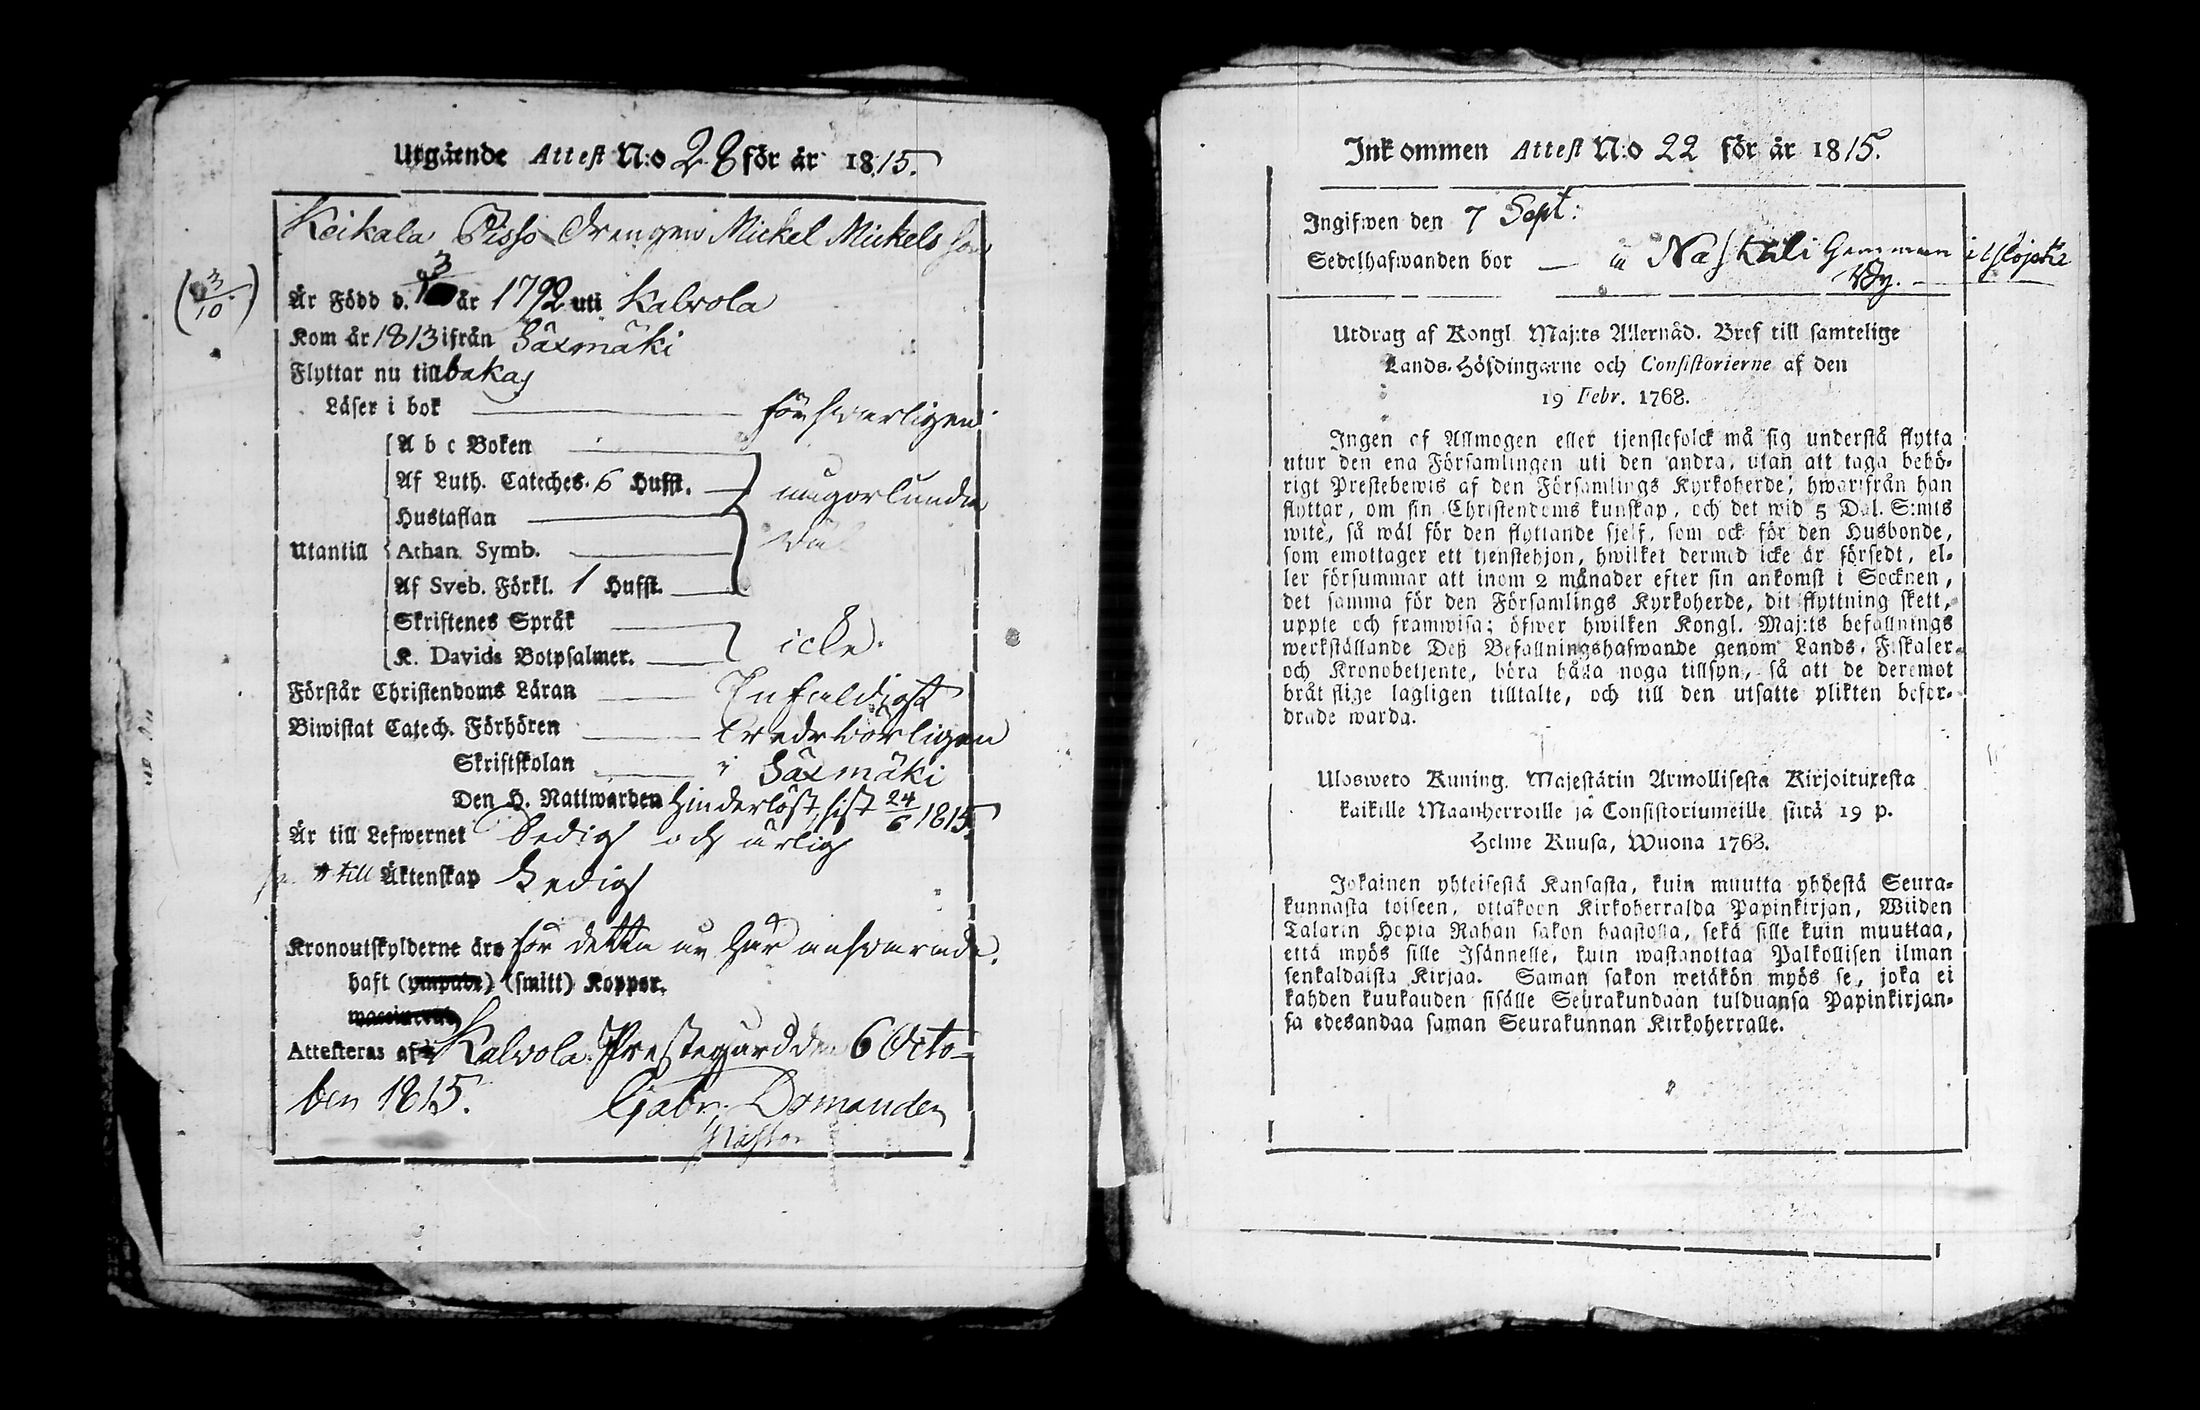 Utgående Attest N:o 28 för år 1815.
Keikala Pisso Drengen Mickel Mickelsson
(3/10)
Är Född d. 3 år 1792 uti Kalvola
Kom år 1813 ifrån Säxmäki
Flyttar nu tillbakas
Läser i bok försvarligen
A b c Boken
Af Luth. Cateches. 6 Hufst. någorlunda
Hustaflan
väl
Utantill Athan. Symb.
Af Sveb. Förkl. 1 Hufst.
Skriftenes Språk
icke.
K. Davids Botpsalmer.
Förstår Christendoms Läran Enfaldigt
Biwistat Catech. Förhören
Skriftskolan i Säxmäki
Den H. Nattwarden hinderlöst, sist 24/6 1815.
Är till Lefwernet Sedig och ärlig
till Äktenskap Ledig
Kronoutskylderne äro för detta år här ansvarade.
haft (smitt) Koppor.
Attesteras af Kalvola Prestegård den 6 Octo-
ber 1815. Gabr. Domander
Pastor
Inkommen Attest N:o 22 för år 1815.
Ingifwen den 7 Sept:
Sedelhafwanden bor Naskali
By.
Utdrag af Kongl. Maj:ts Allernåd. Bref till samtelige
Lands-Höfdingarne och Consistorierne af den
19 Febr. 1768.
Ingen af Allmogen eller tjenstefolck må sig understå flytta
utur den ena Församlingen uti den andra, utan att taga behö-
rigt Prestebewis af den Församlings Kyrkoherde, hwarifrån han
flyttar, om sin Christendoms kunskap, och det wid 5 Dal. S:mts
wite, så wäl för den flyttande sjelf, som ock för den Husbonde,
som emottager ett tjenstehjon, hwilket dermed icke är försedt, el-
ler försummar att inom 2 månader efter sin ankomst i Socknen,
det samma för den Församlings Kyrkoherde, dit flyttning skett,
uppte och framwisa; öfwer hwilken Kongl. Maj:ts befallnings
werkställande Deß Befallningshafwande genom Lands-Fiskaler
och Kronobetjente, böra hålla noga tillsyn, så att de deremot
bråtslige lagligen tilltalte, och till den utsatte plikten befor-
drade warda.
Uloswero Kuning. Majestätin Armollisesta Kirjoituxesta
kaikille Maanherroille ja Consistoriumeille siitä 19 p.
Helme Kuusa, Wuona 1768.
Jokainen yhteisestä Kansasta, kuin muutta yhdestä Seura-
kunnasta toiseen, ottakoon Kirkoherralda Papinkirjan, Wiiden
Talarin Hopia Rahan sakon haastolla, sekä sille kuin muuttaa,
että myös sille Isännelle, kuin wastanottaa Palkollisen ilman
senkaldaista Kirjaa. Saman sakon wetäkön myös se, joka ei
kahden kuukauden sisälle Seurakundaan tulduansa Papinkirjan-
sa edesandaa saman Seurakunnan Kirkoherralle.